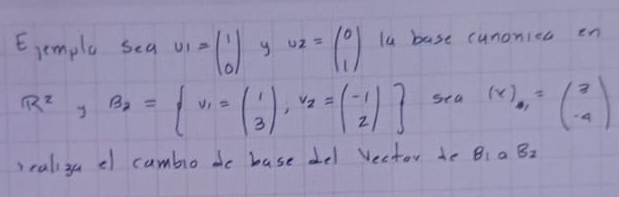 Ejemplo sea u1 = (1 0) y u2 = (0 1) la base canonica en
R² y B2 = { v1 = (1 3) ; v2 = (-1 2) } sea (x)B1 = (3 -4)
realiza el cambio de base del vector de B1 a B2